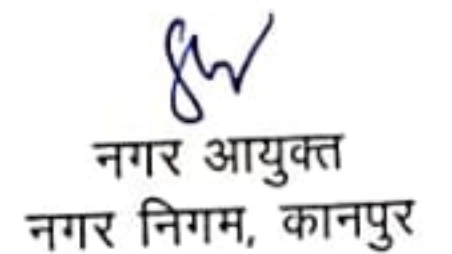 नगर आयुक्त
नगर निगम, कानपुर